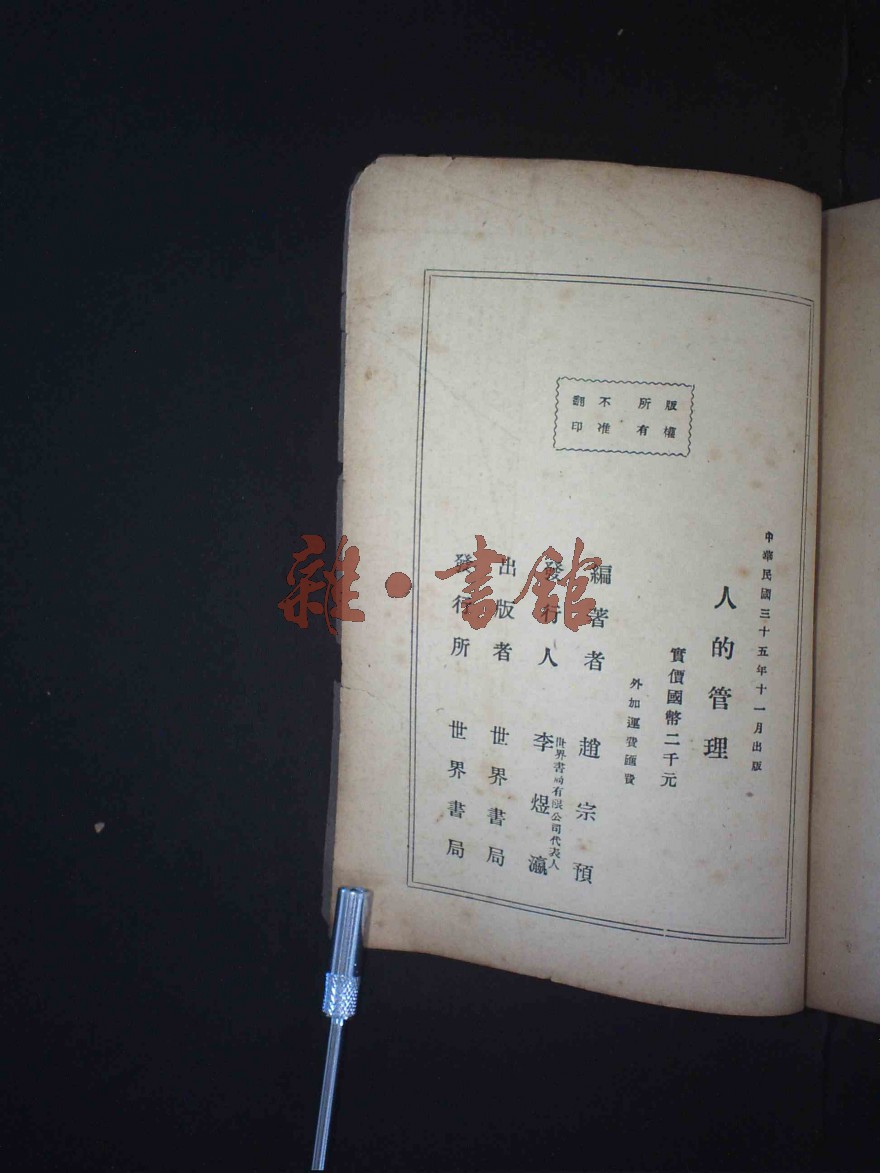 中華民國三十五年十一月出版
人的管理
實價國幣二千元
外加運費匯費
版權
所有
不准
翻印
編著者 趙宗預
世界書局有限公司代表人
發行人 李煜瀛
出版者 世界書局
發行所 世界書局
雜·書館